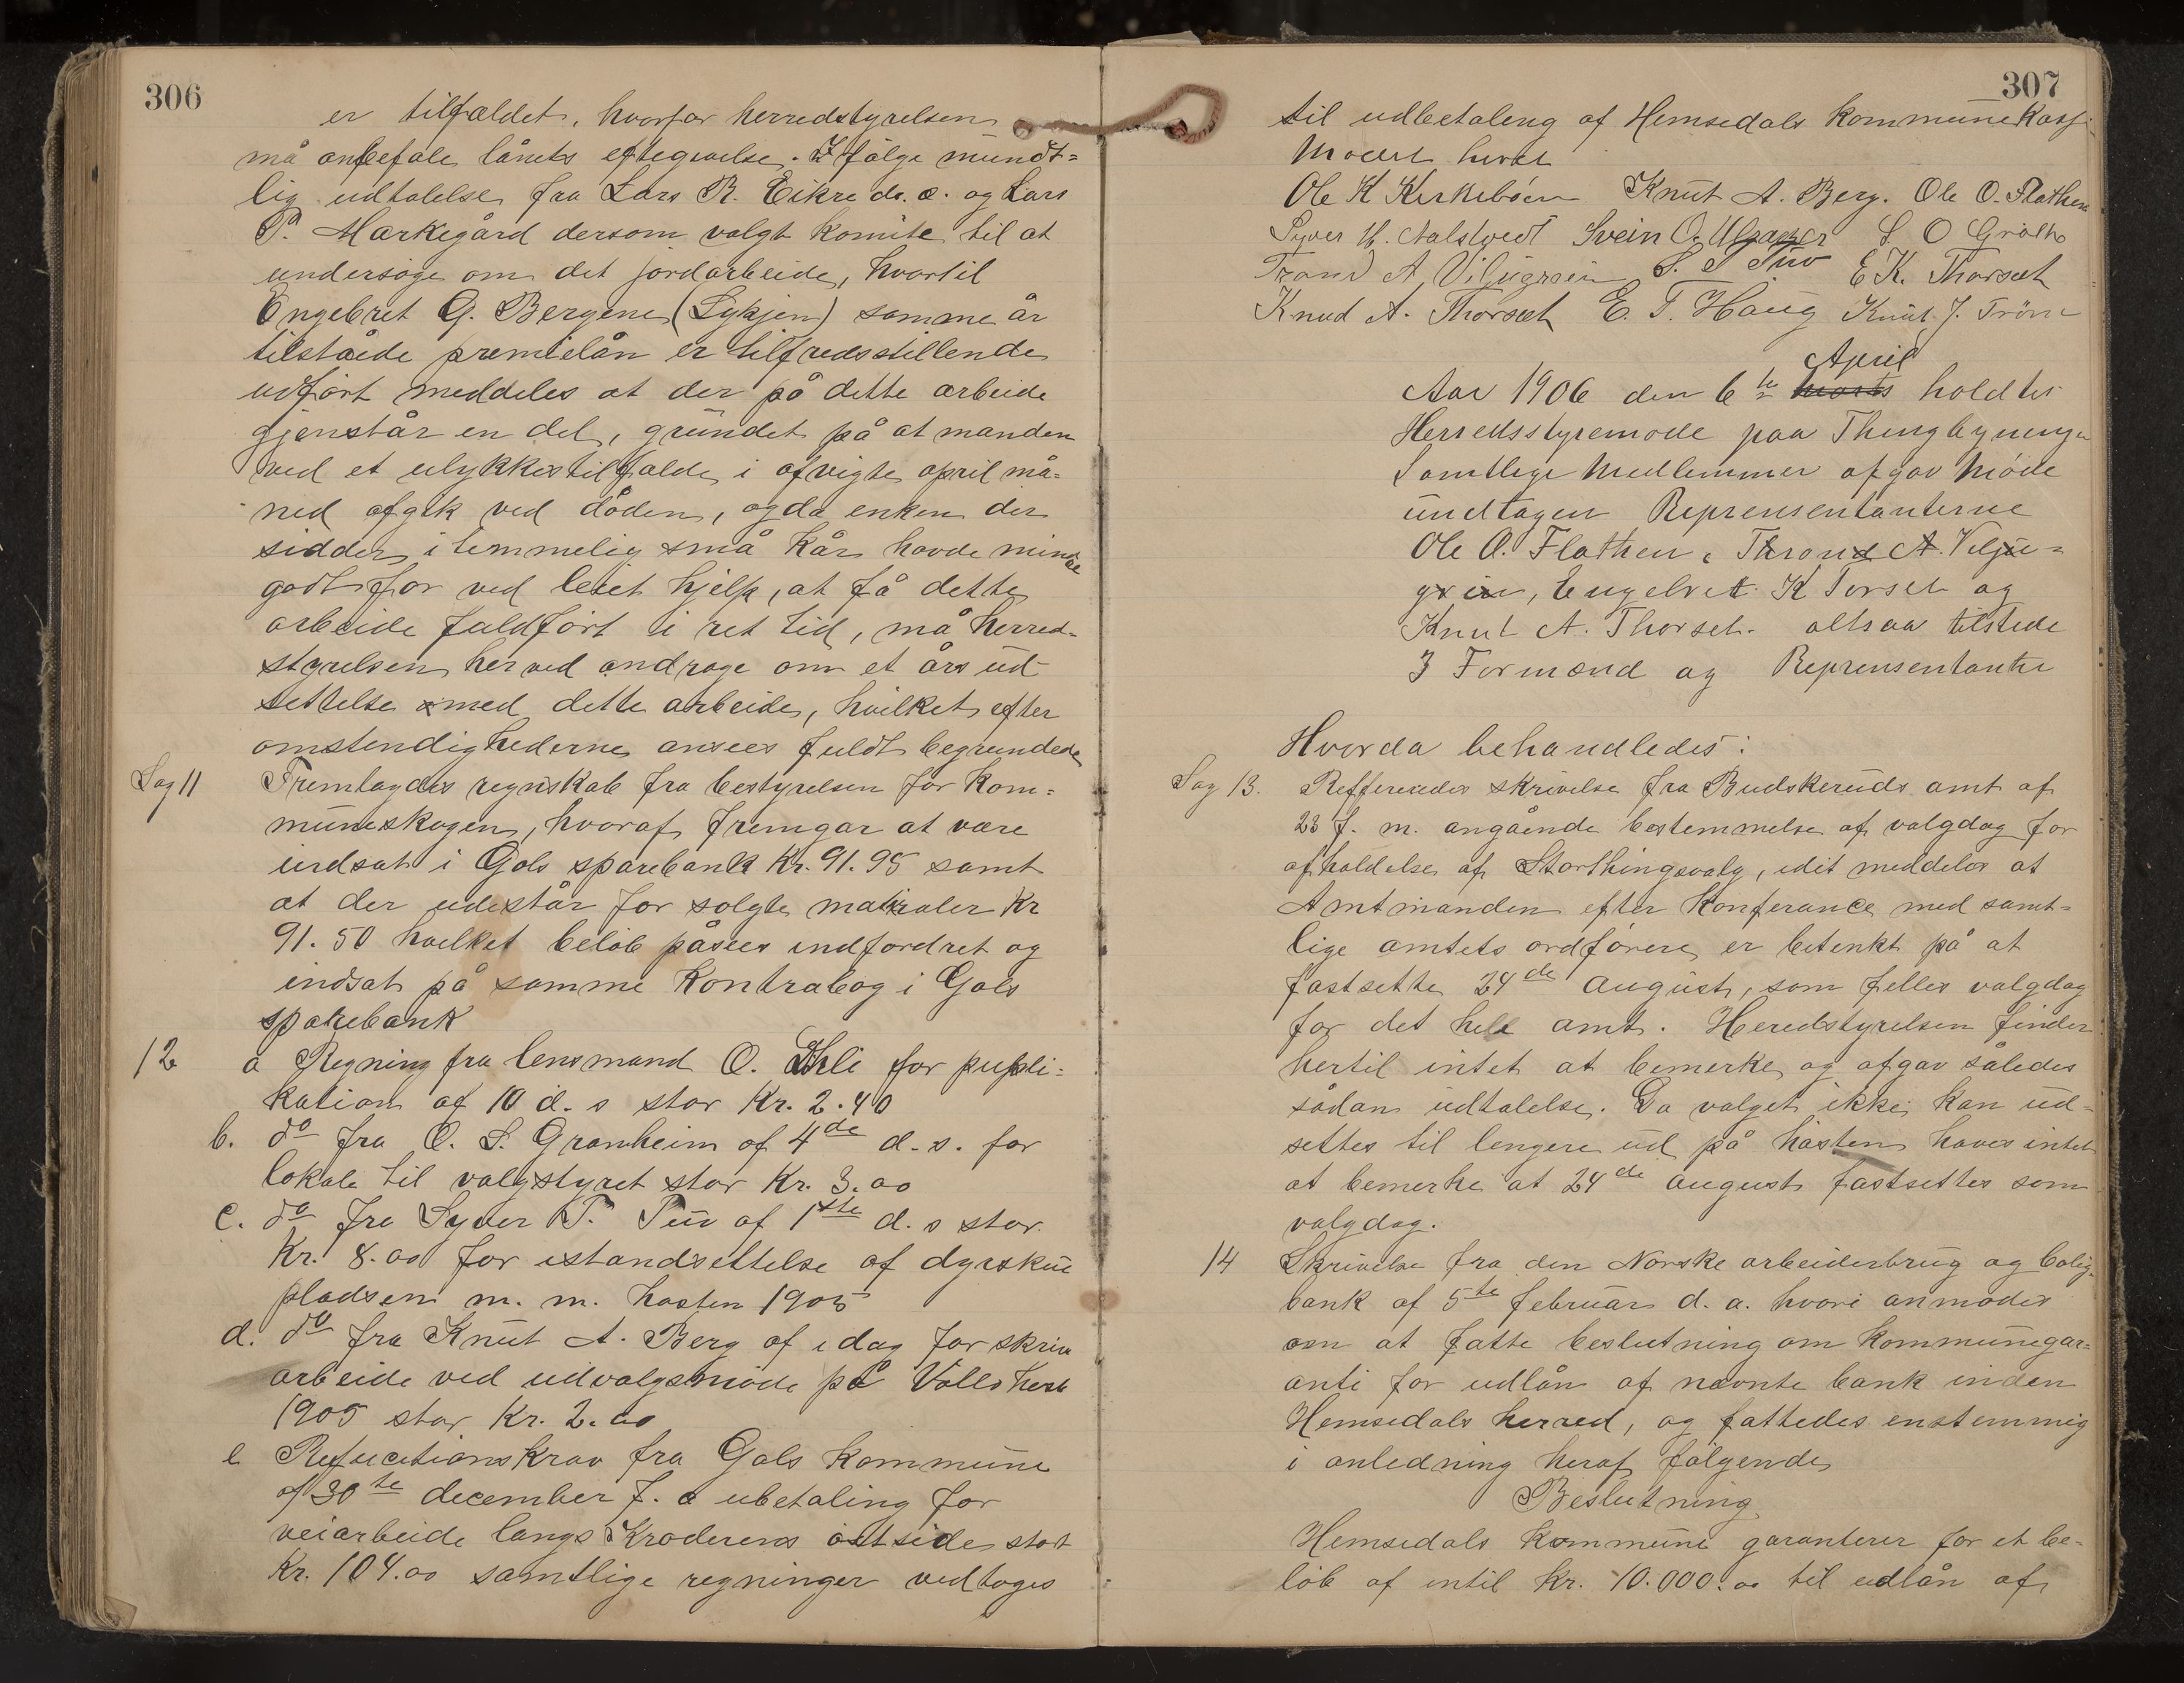 306
er tilfældet, hvorfor herredstyrelsen
må anbefale lånets eftegivelse. I følge mundt=
lig udtalelse fra Lars R. Eikre d. æ. og Lars
P. Markegård dersom valgt komite til at
undersøge om det jordarbeide, hvortil
Engebret G. Bergene (Lykjen) samme år
tilståede premielån er tilfredsstillende
udført meddeles at der på dette arbeide
gjenstår en del, grundet på at manden
ved et ulykkestilfælde i afvigte april må=
ned afgik ved døden, og da enken der
sidder i temmelig små kår havde mindre
godt for ved leiet hjelp, at få dette
arbeide fuldført i ret tid, må herred=
styrelsen herved andrage om et års ud
settelse med dette arbeide, hvilket efter
omstendighederne ansees fuldt begrundede
Sag 11 Fremlagdes regnskab fra bestyrelsen for kom=
muneskogen, hvoraf fremgar at være
indsat i Gols sparebank Kr. 91.95 samt
at der udestår for solgte matrialer Kr
91.50 hvilket beløb påsees indfordret og
indsat på samme kontrabog i Gols
sparebank
12 a Regning fra lensmand O. Ehli for pupli=
kation af 10 d. s stor Kr. 2.40
b. do fra O. S. Granheim af 4de d. s. for
lokale til valgstyret stor Kr. 3.00
c. do fra Syver T. Tuv af 1ste d. s stor
Kr. 8.00 for istandsettelse af dyrskue
pladsen m. m. høsten 1905
d. do fra Knut A. Berg af idag for skriv
arbeide ved udvalgsmøde på Volls høst
1905 stor Kr. 2.00
e Refucationskrav fra Gols kommune
af 30te december f. a ubetaling for
veiarbeide langs Krøderens østside stort
Kr. 104.00 samtlige regninger vedtoges
307
til udbetaleng af Hemsedals kommunekasse
Mødet hævet
Ole K Kirkebøen Knut A. Berg. Ole O. Flathen
Syver H. Aalstvedt Svein O. Ulsaker S O Grøtho
Trond A Viljugrein S. T Tuv E K. Thorset
Knud A. Thorset E. T. Haug Knut J. Trøim
April
Aar 1906 den 6te marts holdtes
Herredsstyremøde paa Thingbyninge
Samtlige Medlemmer afgav Møde
undtagen Reprensentanterne
Ole O. Flathen, Thrond A. Vilju=
grein, Engelret K Torset og
Knut A. Thorset. altsaa tilstede
3 Formænd og Reprensentanter
Hvorda behandledes:
Sag 13. Reffereredes skrivelse fra Budskeruds amt af
23 f. m. angående bestemmelse af valgdag for
afholdelse af Storthingsvalg, idet meddeles at
Amtmanden efter konferance med samt=
lige amtets ordførere, er betenkt på at
fastsette 24de august, som felles valgdag
for det hele amt. Heredstyrelsen finder
hertil intet at bemerke, og afgav således
sådan udtalelse. Da valget ikke kan ud=
settes til lengere ud på høsten haves intet
at bemerke at 24de august fastsettes som
valgdag.
14 Skrivelse fra den Norske arbeiderbrug og bolig=
bank af 5te februar d. a. hvori anmodes
om at fatte beslutning om kommunegar=
anti for udlån af nævnte bank inden
Hemsedals herred, og fattedes enstemmig
i anledning heraf følgende
Beslutning
Hemsedals kommune garanterer for et be=
løb af intil Kr. 10.000.00 til udlån af